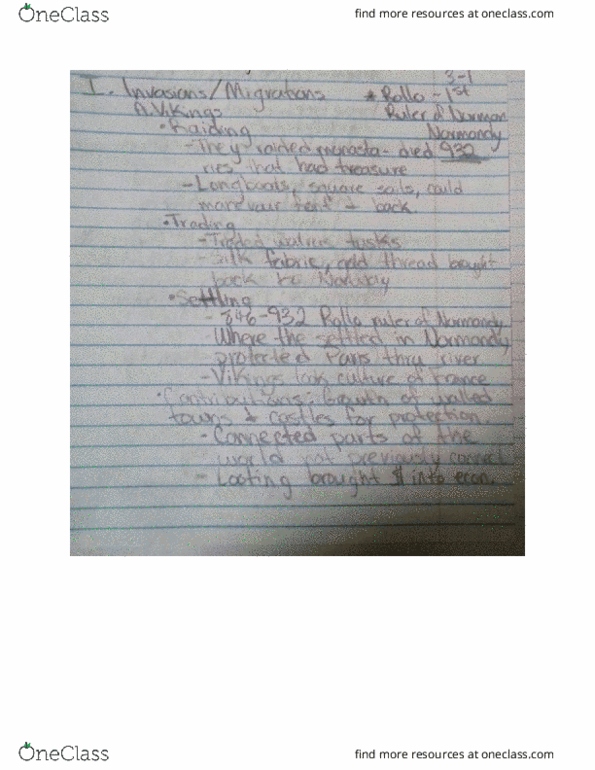 OneClass
find more resources at oneclass.com
3-1
I. Invasions/Migrations * Rollo - 1st
A. Vikings Ruler of Norman
• Raiding Normandy
- They raided monasta- died 932
ries that had treasure
- Longboats, square sails, could
& back.
• Trading
- Traded tusks
- Silk fabric, gold thread brought
back to Norway
• Settling
- 846-932 Rollo ruler of Normandy
- Where the settled in Normandy,
protected Paris thru river
- Vikings took culture of France
• Contributions: Growth of walled
towns & castles for protection.
- Connected parts of the
world not previously connect
- Looting brought $ into econ.
OneClass
find more resources at oneclass.com